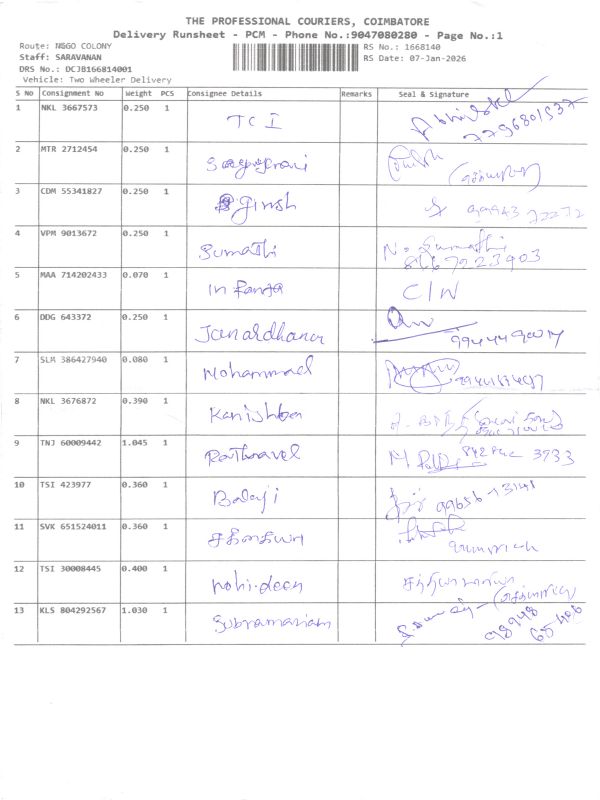 THE PROFESSIONAL COURIERS, COIMBATORE
Delivery Runsheet - PCM - Phone No.:9047080280 - Page No.:1
Route: NGGO COLONY RS No.: 1668140
Staff: SARAVANAN RS Date: 07-Jan-2026
DRS No.: DCJB166814001
Vehicle: Two Wheeler Delivery
S No Consignment No Weight PCS Consignee Details Remarks Seal & Signature
1 NKL 3667573 0.250 1 TCI
7796801537
2 MTR 2712454 0.250 1
3 CDM 55341827 0.250 1 Jinsh
4 VPM 9013672 0.250 1 Sumathi N. Sumathi
8667223903
5 MAA 714202433 0.070 1 C/W
6 DDG 643372 0.250 1 Janardhanan
7 SLM 386427940 0.080 1 Mohammad
8 NKL 3676872 0.390 1 Kanishka
9 TNJ 60009442 1.045 1 3733
10 TSI 423977 0.360 1 Balaji 99656-73141
11 SVK 651524011 0.360 1
12 TSI 30008445 0.400 1 Mohi-deen
13 KLS 804292567 1.030 1 Subramaniam
98948
65406